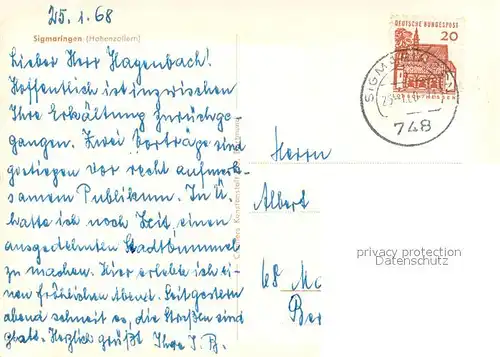 25.1.68
Sigmaringen (Hohenzollern)
Lieber Herr Hagenbach!
Hoffentlich ist inzwischen
Ihre Erkältung zurückge-
gangen. Zwei Vorträge sind
gestiegen vor recht aufmerk-
samem Publikum. In Ü.
hatte ich noch Zeit, einen
ausgedehnten Stadtbummel
zu machen. Hier erlebte ich ei-
nen fröhlichen Abend. Seit gestern
abend schneit es, die Straßen sind
glatt. Herzlich grüßt Ihre I. B.
DEUTSCHE BUNDESPOST
20
748
Herrn
Albert
68 Ma
Ber
privacy protection
Datenschutz